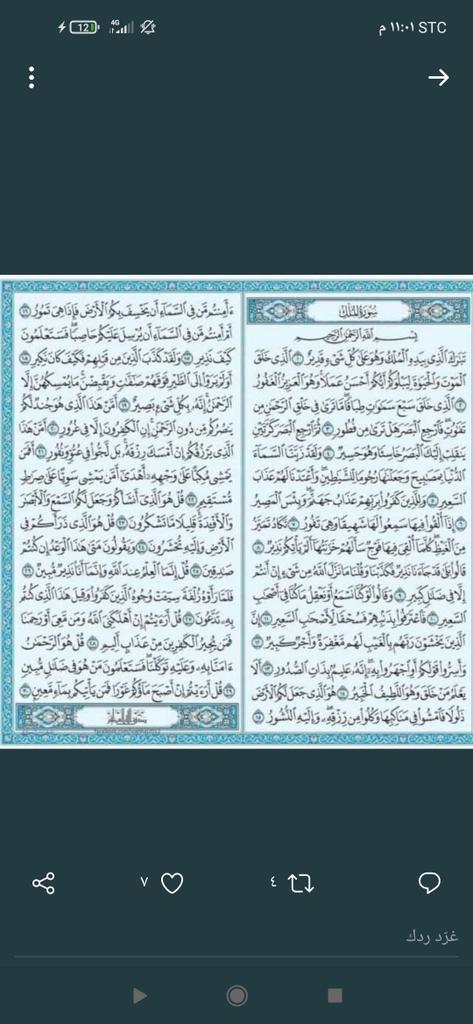 12 4G ١١:٠١ م STC
سُورَةُ المُلْكِ
بِسْمِ ٱللَّهِ ٱلرَّحْمَٰنِ ٱلرَّحِيمِ
تَبَٰرَكَ ٱلَّذِى بِيَدِهِ ٱلْمُلْكُ وَهُوَ عَلَىٰ كُلِّ شَىْءٍ قَدِيرٌ ١ ٱلَّذِى خَلَقَ
ٱلْمَوْتَ وَٱلْحَيَوٰةَ لِيَبْلُوَكُمْ أَيُّكُمْ أَحْسَنُ عَمَلًا وَهُوَ ٱلْعَزِيزُ ٱلْغَفُورُ
٢ ٱلَّذِى خَلَقَ سَبْعَ سَمَٰوَٰتٍ طِبَاقًا مَّا تَرَىٰ فِى خَلْقِ ٱلرَّحْمَٰنِ مِن
تَفَٰوُتٍ فَٱرْجِعِ ٱلْبَصَرَ هَلْ تَرَىٰ مِن فُطُورٍ ٣ ثُمَّ ٱرْجِعِ ٱلْبَصَرَ كَرَّتَيْنِ
يَنقَلِبْ إِلَيْكَ ٱلْبَصَرُ خَاسِئًا وَهُوَ حَسِيرٌ ٤ وَلَقَدْ زَيَّنَّا ٱلسَّمَآءَ
ٱلدُّنْيَا بِمَصَٰبِيحَ وَجَعَلْنَٰهَا رُجُومًا لِّلشَّيَٰطِينِ وَأَعْتَدْنَا لَهُمْ عَذَابَ
ٱلسَّعِيرِ ٥ وَلِلَّذِينَ كَفَرُوا۟ بِرَبِّهِمْ عَذَابُ جَهَنَّمَ وَبِئْسَ ٱلْمَصِيرُ
٦ إِذَآ أُلْقُوا۟ فِيهَا سَمِعُوا۟ لَهَا شَهِيقًا وَهِىَ تَفُورُ ٧ تَكَادُ تَمَيَّزُ
مِنَ ٱلْغَيْظِ كُلَّمَآ أُلْقِىَ فِيهَا فَوْجٌ سَأَلَهُمْ خَزَنَتُهَآ أَلَمْ يَأْتِكُمْ نَذِيرٌ ٨
قَالُوا۟ بَلَىٰ قَدْ جَآءَنَا نَذِيرٌ فَكَذَّبْنَا وَقُلْنَا مَا نَزَّلَ ٱللَّهُ مِن شَىْءٍ إِنْ أَنتُمْ
إِلَّا فِى ضَلَٰلٍ كَبِيرٍ ٩ وَقَالُوا۟ لَوْ كُنَّا نَسْمَعُ أَوْ نَعْقِلُ مَا كُنَّا فِىٓ أَصْحَٰبِ
ٱلسَّعِيرِ ١٠ فَٱعْتَرَفُوا۟ بِذَنۢبِهِمْ فَسُحْقًا لِّأَصْحَٰبِ ٱلسَّعِيرِ ١١ إِنَّ
ٱلَّذِينَ يَخْشَوْنَ رَبَّهُم بِٱلْغَيْبِ لَهُم مَّغْفِرَةٌ وَأَجْرٌ كَبِيرٌ ١٢
وَأَسِرُّوا۟ قَوْلَكُمْ أَوِ ٱجْهَرُوا۟ بِهِۦٓ إِنَّهُۥ عَلِيمٌۢ بِذَاتِ ٱلصُّدُورِ ١٣ أَلَا
يَعْلَمُ مَنْ خَلَقَ وَهُوَ ٱللَّطِيفُ ٱلْخَبِيرُ ١٤ هُوَ ٱلَّذِى جَعَلَ لَكُمُ ٱلْأَرْضَ
ذَلُولًا فَٱمْشُوا۟ فِى مَنَاكِبِهَا وَكُلُوا۟ مِن رِّزْقِهِۦ وَإِلَيْهِ ٱلنُّشُورُ ١٥
ءَأَمِنتُم مَّن فِى ٱلسَّمَآءِ أَن يَخْسِفَ بِكُمُ ٱلْأَرْضَ فَإِذَا هِىَ تَمُورُ ١٦
أَمْ أَمِنتُم مَّن فِى ٱلسَّمَآءِ أَن يُرْسِلَ عَلَيْكُمْ حَاصِبًا فَسَتَعْلَمُونَ
كَيْفَ نَذِيرِ ١٧ وَلَقَدْ كَذَّبَ ٱلَّذِينَ مِن قَبْلِهِمْ فَكَيْفَ كَانَ نَكِيرِ ١٨
أَوَلَمْ يَرَوْا۟ إِلَى ٱلطَّيْرِ فَوْقَهُمْ صَٰٓفَّٰتٍ وَيَقْبِضْنَ مَا يُمْسِكُهُنَّ إِلَّا
ٱلرَّحْمَٰنُ إِنَّهُۥ بِكُلِّ شَىْءٍۭ بَصِيرٌ ١٩ أَمَّنْ هَٰذَا ٱلَّذِى هُوَ جُندٌ لَّكُمْ
يَنصُرُكُم مِّن دُونِ ٱلرَّحْمَٰنِ إِنِ ٱلْكَٰفِرُونَ إِلَّا فِى غُرُورٍ ٢٠ أَمَّنْ هَٰذَا
ٱلَّذِى يَرْزُقُكُمْ إِنْ أَمْسَكَ رِزْقَهُۥ بَل لَّجُّوا۟ فِى عُتُوٍّ وَنُفُورٍ ٢١ أَفَمَن
يَمْشِى مُكِبًّا عَلَىٰ وَجْهِهِۦٓ أَهْدَىٰٓ أَمَّن يَمْشِى سَوِيًّا عَلَىٰ صِرَٰطٍ
مُّسْتَقِيمٍ ٢٢ قُلْ هُوَ ٱلَّذِىٓ أَنشَأَكُمْ وَجَعَلَ لَكُمُ ٱلسَّمْعَ وَٱلْأَبْصَٰرَ
وَٱلْأَفْـِٔدَةَ قَلِيلًا مَّا تَشْكُرُونَ ٢٣ قُلْ هُوَ ٱلَّذِى ذَرَأَكُمْ فِى
ٱلْأَرْضِ وَإِلَيْهِ تُحْشَرُونَ ٢٤ وَيَقُولُونَ مَتَىٰ هَٰذَا ٱلْوَعْدُ إِن كُنتُمْ
صَٰدِقِينَ ٢٥ قُلْ إِنَّمَا ٱلْعِلْمُ عِندَ ٱللَّهِ وَإِنَّمَآ أَنَا۠ نَذِيرٌ مُّبِينٌ ٢٦
فَلَمَّا رَأَوْهُ زُلْفَةً سِيٓـَٔتْ وُجُوهُ ٱلَّذِينَ كَفَرُوا۟ وَقِيلَ هَٰذَا ٱلَّذِى كُنتُم
بِهِۦ تَدَّعُونَ ٢٧ قُلْ أَرَءَيْتُمْ إِنْ أَهْلَكَنِىَ ٱللَّهُ وَمَن مَّعِىَ أَوْ رَحِمَنَا
فَمَن يُجِيرُ ٱلْكَٰفِرِينَ مِنْ عَذَابٍ أَلِيمٍ ٢٨ قُلْ هُوَ ٱلرَّحْمَٰنُ
ءَامَنَّا بِهِۦ وَعَلَيْهِ تَوَكَّلْنَا فَسَتَعْلَمُونَ مَنْ هُوَ فِى ضَلَٰلٍ مُّبِينٍ
٢٩ قُلْ أَرَءَيْتُمْ إِنْ أَصْبَحَ مَآؤُكُمْ غَوْرًا فَمَن يَأْتِيكُم بِمَآءٍ مَّعِينٍۭ ٣٠
٤ ٧
غرّد ردك